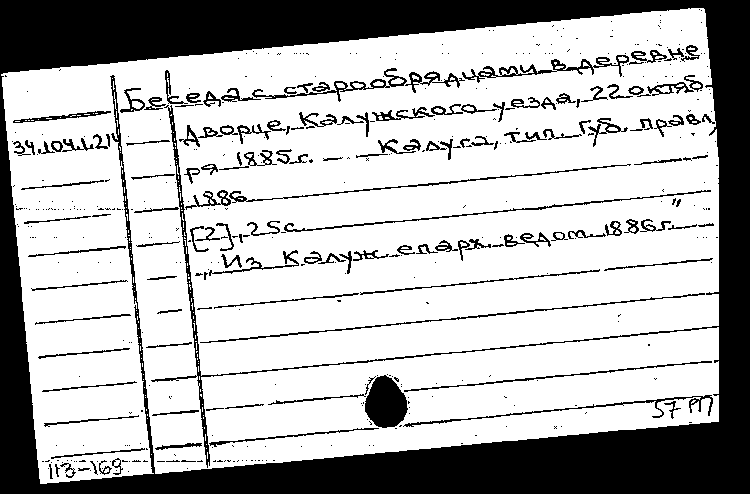 Беседа с старообрядцами в деревне
34.104.1.214 Дворце, Калужского уезда, 22 октяб-
ря 1885г. — Калуга, тип. Губ. правл,
1886
[2], 25с.
„Из Калуж. епарх. ведом. 1886г."
113-169